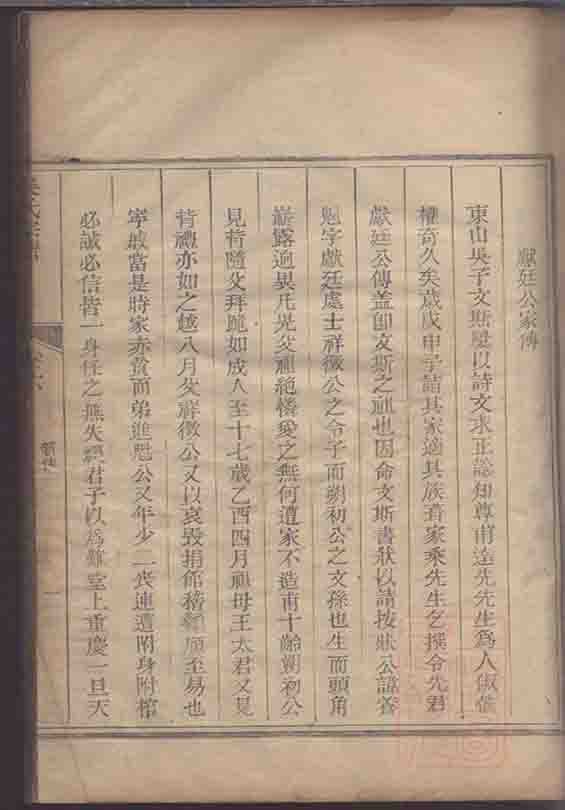 獻廷公家傳
東山吳子文斯屢以詩文求正認知尊甫達先先生為人俶儻
權奇久矣歲戊申予詣其家適其族耆家乘先生乞撰令先君
獻廷公傳蓋卽文斯之祖也因命文斯書狀以請按狀公諱
魁字獻廷處士祥徵公之令子而朔初公之文孫也生而頭角
嶄露逈異凡兒父祖絕憐愛之無何遭家不造甫十齡朔初公
見背隨父拜跪如成人至十七歲乙酉四月祖母王太君又見
背禮亦如之越八月父祥徵公又以哀毀捐館稽顙頎至易也
寧戚當是時家赤貧而弟進魁公又年少二喪連遭附身附棺
必誠必信皆一身任之無失禮君子以為難堂上重慶一旦天